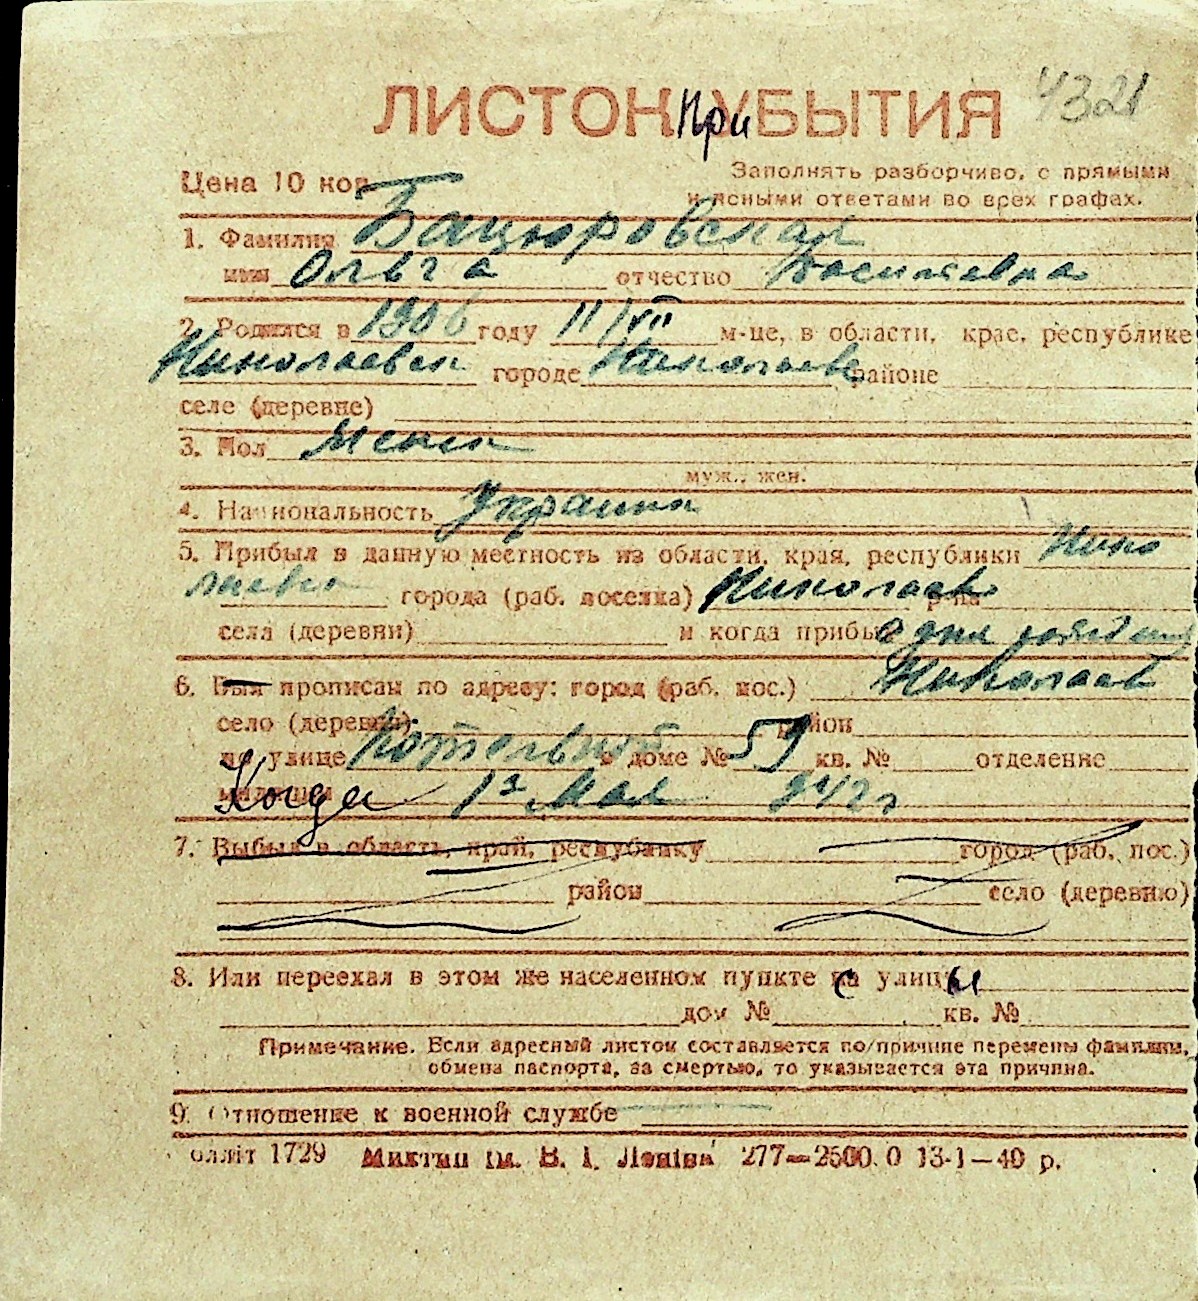 ЛИСТОК При УБЫТИЯ 4321
Цена 10 коп. Заполнять разборчиво, с прямыми
и ясными ответами во всех графах.
1. Фамилия Бацюровская
имя Ольга отчество Васильевна
2. Родился в 1906 году 11/VII м-це, в области, крае, республике
Николаевск городе Николаев районе
селе (деревне)
3. Пол женск
муж., жен.
4. Национальность Украинка
5. Прибыл в данную местность из области, края, республики Нико
лаевск города (раб. поселка) Николаев р-на
села (деревни) и когда прибыл со дня рожден
6. Был прописан по адресу: город (раб. пос.) Николаев
село (деревня) район
по улице Котельной в доме № 59 кв. № отделение
милиции Когда 1го Мая 942 г
7. Выбыл в область, край, республику город (раб. пос.)
район село (деревню)
8. Или переехал в этом же населенном пункте с улицы
дом № кв. №
Примечание. Если адресный листок составляется по причине перемены фамилии,
обмена паспорта, за смертью, то указывается эта причина.
9. Отношение к военной службе
олліт 1729 Миктип ім. В. І. Леніна 277—2500.0 13-1—40 р.